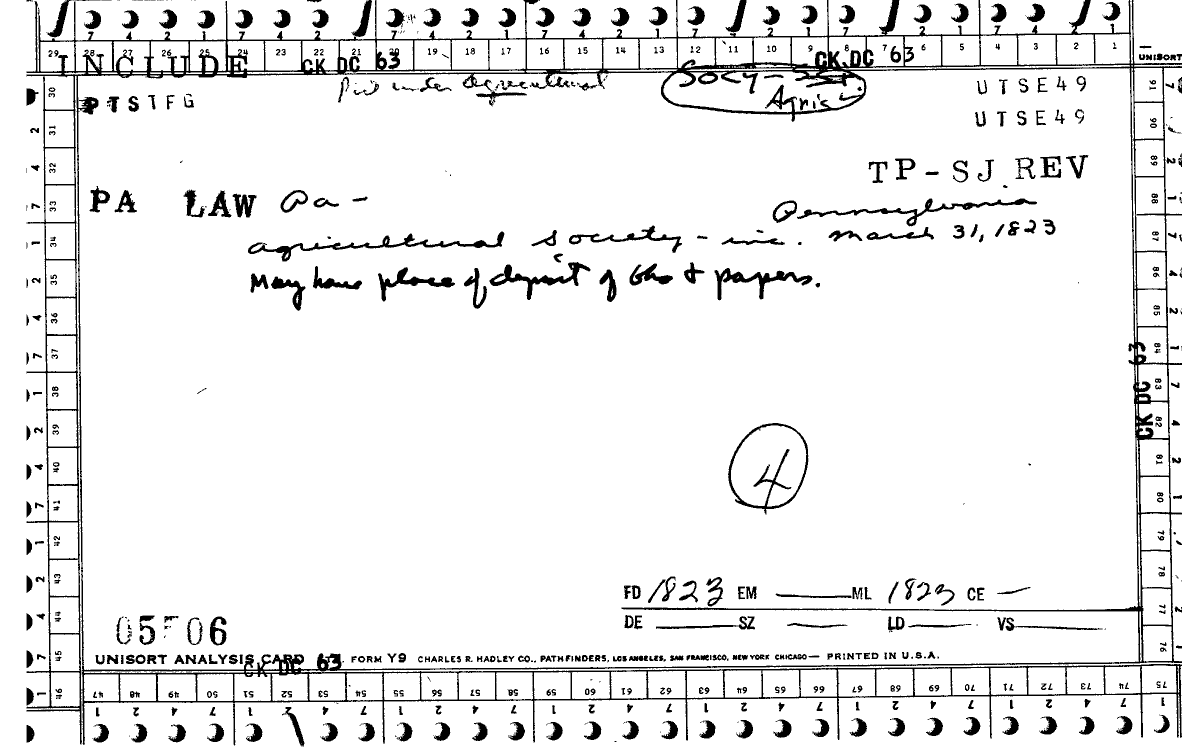 7 4 2 1 7 4 2 1 7 4 2 1 7 4 2 1 7 4 2 1 7 4 2 1 7 4 2 1
29 28 27 26 25 24 23 22 21 20 19 18 17 16 15 14 13 12 11 10 9 8 7 6 5 4 3 2 1 UNISORT
INCLUDE CK DC 63 CK DC 63
under Agricultural SOCY-
PTSTFG Agric UTSE49
UTSE49
TP-SJ REV
PA LAW Pa - Pennsylvania
Agricultural Society - inc. March 31, 1823
May have place of deposit of bks & papers.
CK DC 63
4
FD 1823 EM ML 1823 CE
DE SZ LD VS
05 06
UNISORT ANALYSIS CARD FORM Y9 CHARLES R. HADLEY CO., PATHFINDERS, LOS ANGELES, SAN FRANCISCO, NEW YORK CHICAGO — PRINTED IN U.S.A.
CK DC 63
30 31 32 33 34 35 36 37 38 39 40 41 42 43 44 45 46
47 48 49 50 51 52 53 54 55 56 57 58 59 60 61 62 63 64 65 66 67 68 69 70 71 72 73 74 75
1 2 4 7 1 2 4 7 1 2 4 7 1 2 4 7 1 2 4 7 1 2 4 7 1 2 4 7 1
91 90 89 88 87 86 85 84 83 82 81 80 79 78 77 76